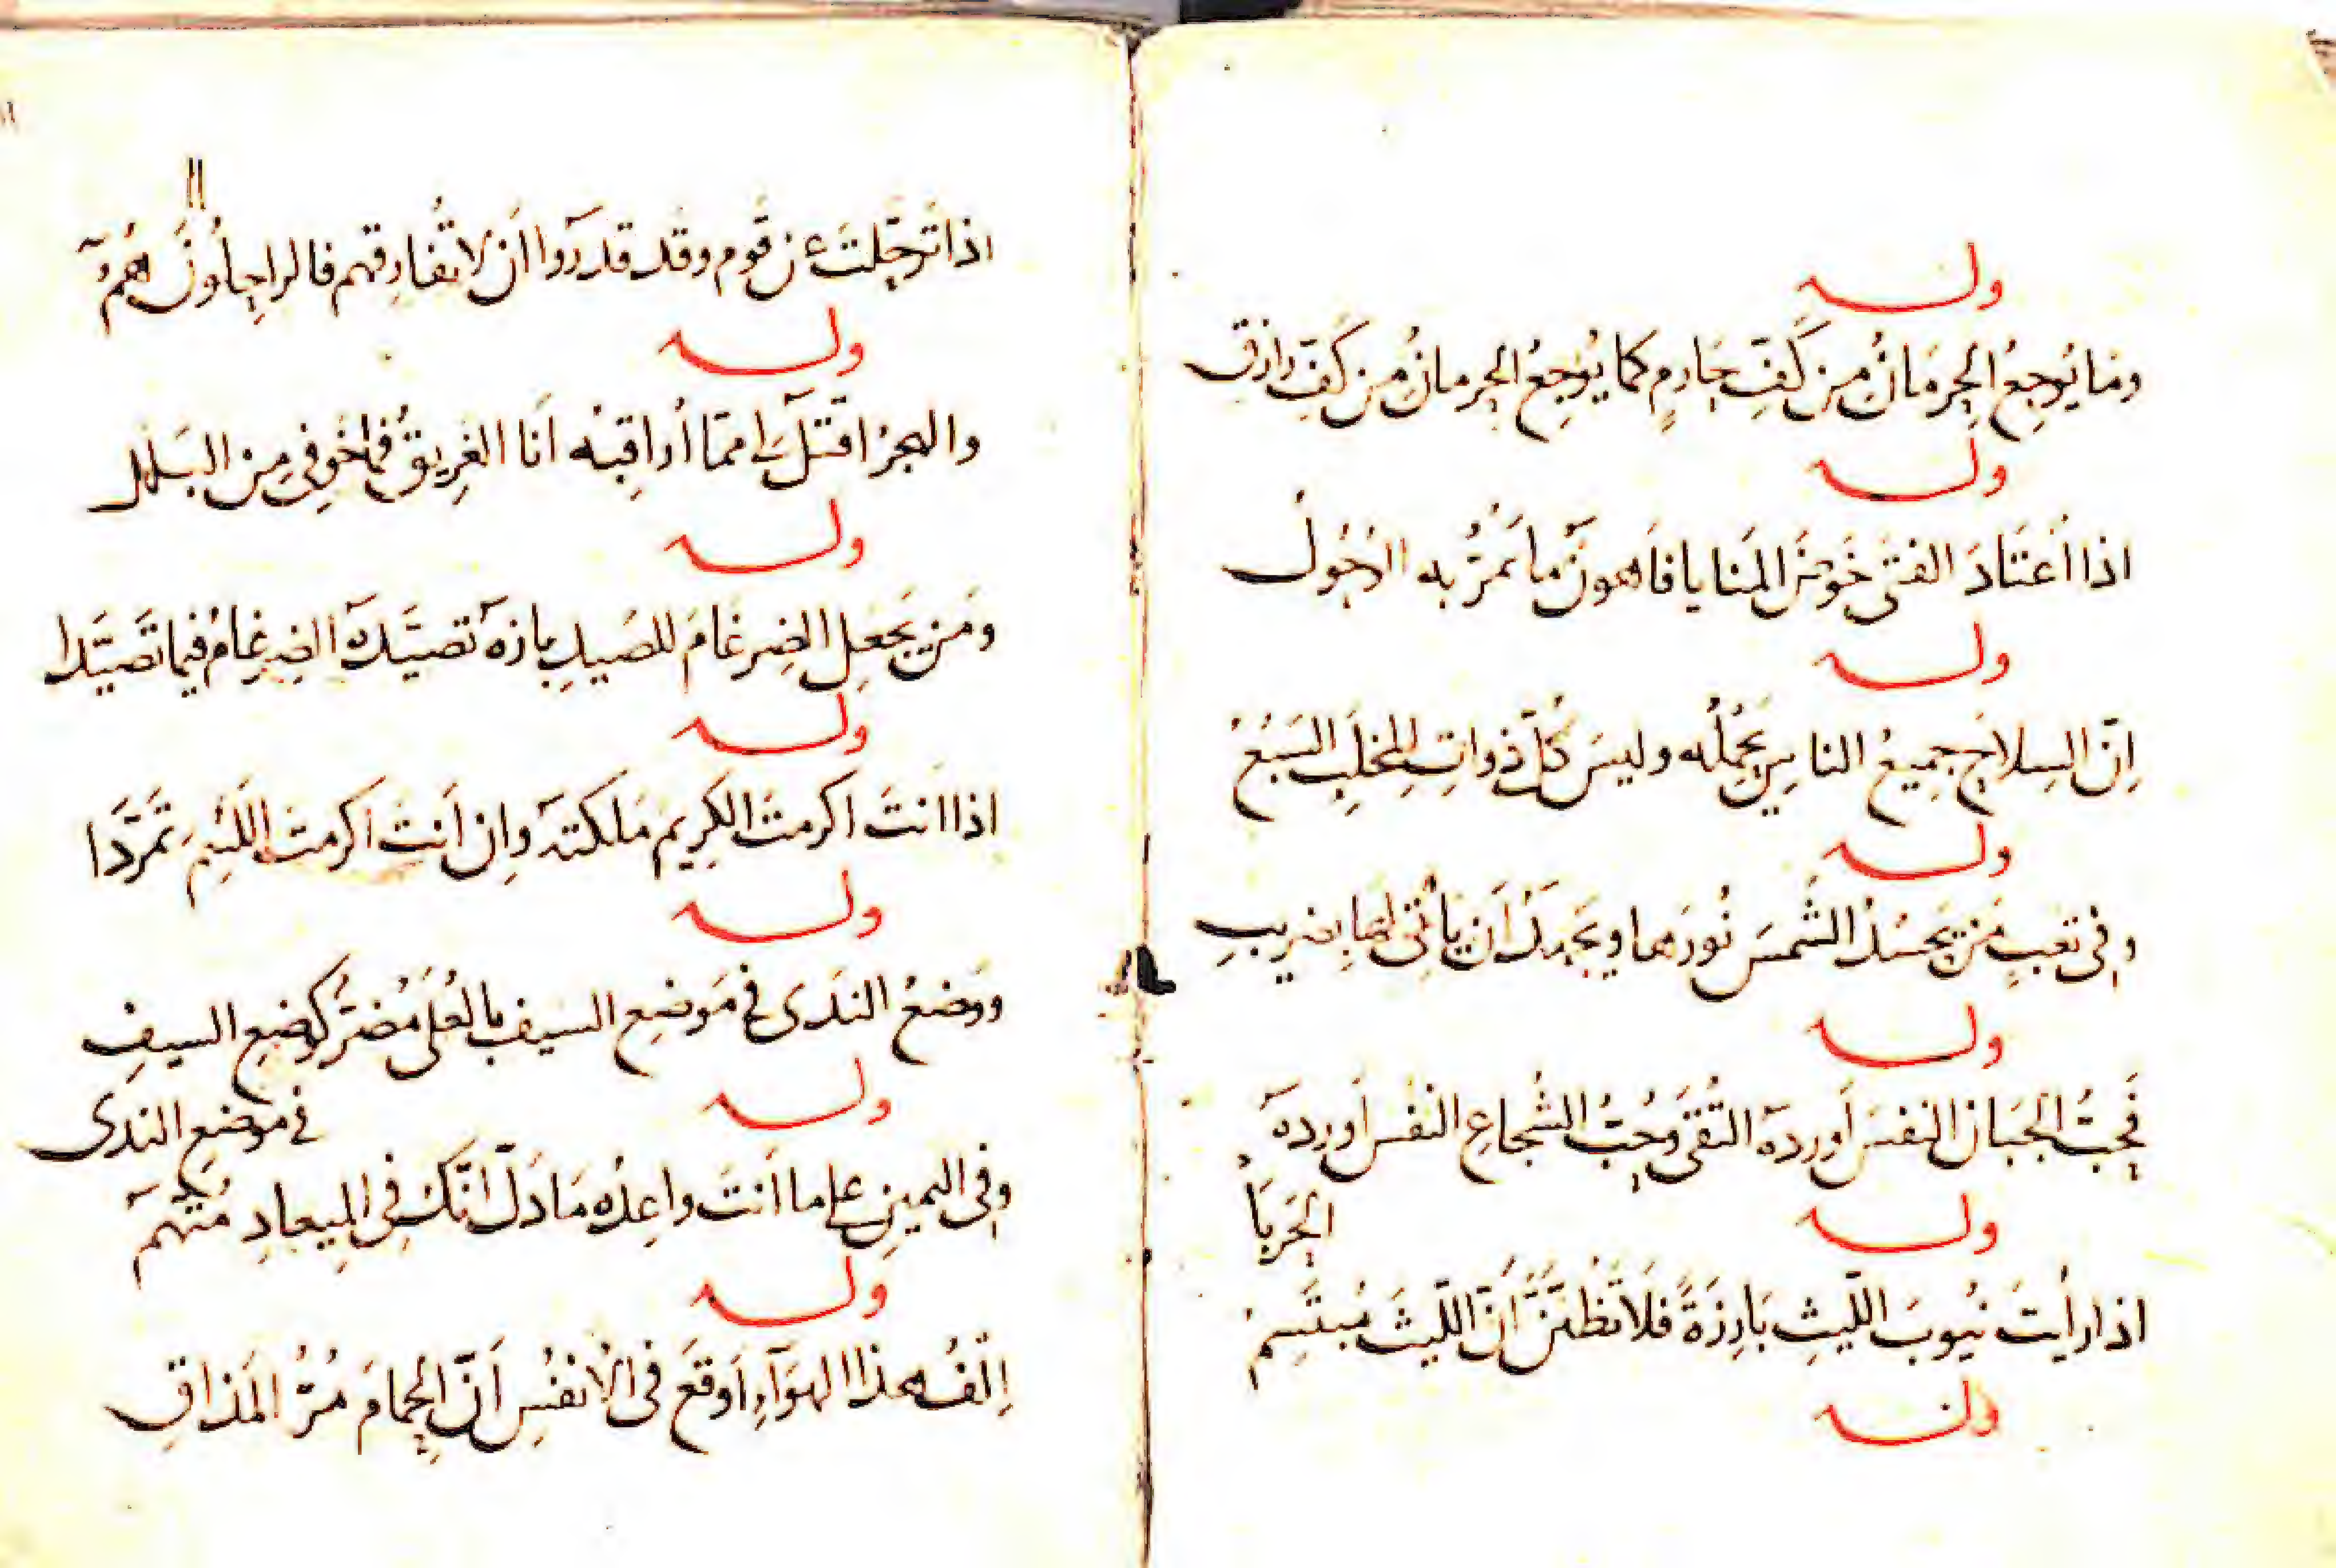 وله
ومَا يُوجِعُ الحِرمَانُ مِن كَفِّ حَارِمٍ كما يُوجِعُ الحرمانُ مِن كَفِّ رازق
وله
اذا اعتَادَ الفتَى خَوضَ المَنايا فاَهونُ ما تَمرُّ به الوُحُولُ
وله
اِنّ السِلاحَ جمِيعُ الناسِ يَحمِلُه وليسَ كلُّ ذواتِ المخلَبِ السَبُعُ
وله
وفي تعبٍ مَن يَحسُدُ الشَمسَ نُورَها ويَجهدُ اَن يأتي لها بضَرِيبِ
وله
فَحُبُّ الجَبَانِ النفسَ اَوردهَ التُقَى وحُبُّ الشُجاعِ النفسَ اَوردهَ
الحَربَا
وله
اذا رأيتَ نيُوبَ اللّيثِ بَارِزَةً فلاَ تَظُنَّنَّ اَنَّ اللّيثَ مُبتَسِمُ
وله
١١
١١
اذا ترحّلتَ عن قَوم وقد قدروا ان لا تُفارِقهم فالراحِلُونَ همُ
وله
والهجرُ اقتَلُ لي ممّا أُراقِبُه اَنا الغرِيقُ فما خَوفي مِن البَلَلِ
وله
ومَن يَجعلِ الضِرغامَ للصَيدِ بازهَ تصيّدهَ الضِرغامُ فيما تَصَيّدا
وله
اذا انتَ اكرمتَ الكرِيم مَلكتهَ وان اَنتَ اكرمتَ اللئِيمَ تمَرَّدَا
وله
ووَضعُ النَدَى في مَوضعِ السيفِ بالعُلَى مُضِرٌّ كوضعِ السيفِ
في موضعِ الندَى
وله
وفي اليمينِ على ما اَنتَ واعِدُه مَا دَلّ اَنّكَ في المِيعادِ مُتّهَمُ
وله
اِلفُ هذا الهوَآءِ اَوقعَ في الاَنفُسِ اَنّ الحِمامَ مُرُّ المَذاقِ